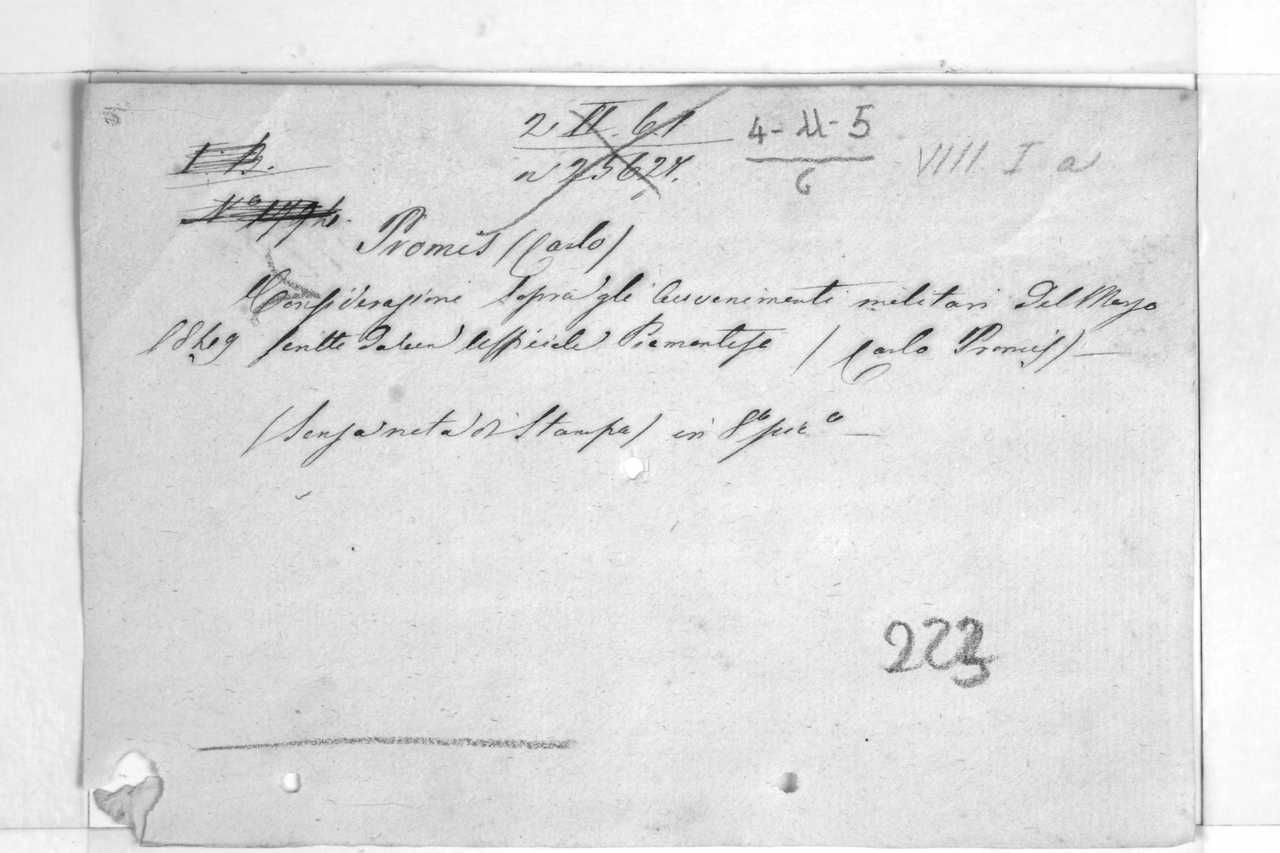 2 II. 6.1
n 25624.
4-11-5
6
VIII. I a
I. B.
Promis (Carlo)
Considerazioni sopra gli Avvenimenti militari del Marzo
1849 scritte da un Ufficiale Piemontese (Carlo Promis)—
(Senza nota di Stampa) in 8º picº—
223